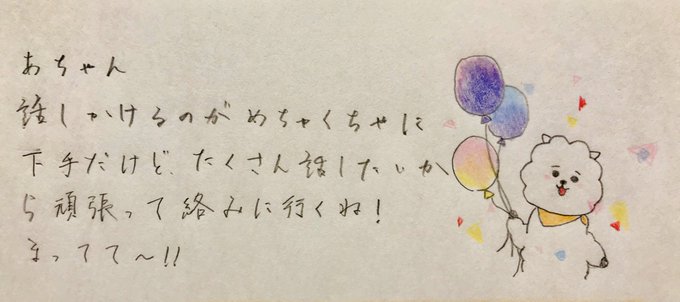 あちゃん
話しかけるのがめちゃくちゃに
下手だけど、たくさん話したいか
ら頑張って絡みに行くね!
まってて～!!